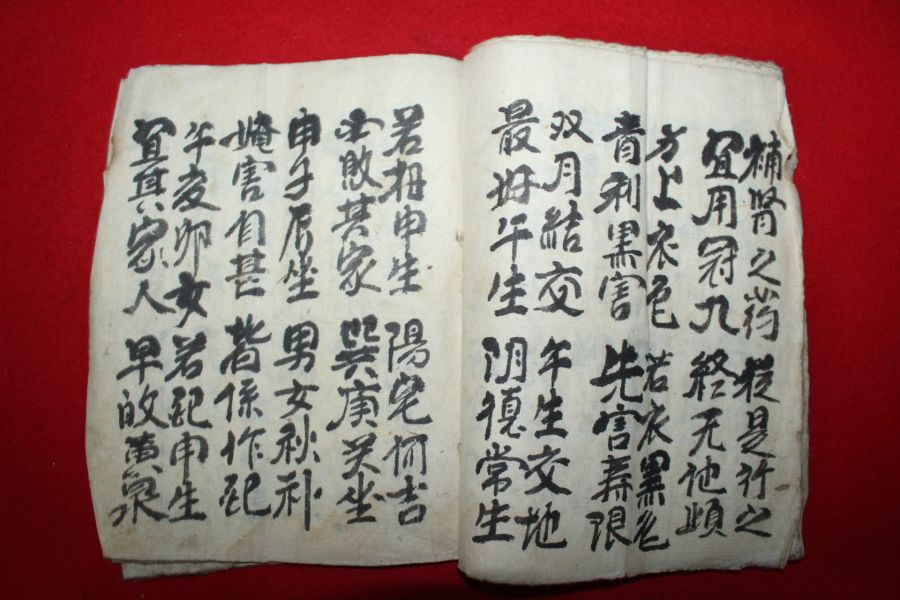 補腎之药 從是行之
宜用冠九 終无他頉
方上衣色 若衣黑色
青利黑害 先害壽限
双月結交 午生交地
最好午生 阴德常生
若相申生 陽宅何吉
敗其家 巽庚坐
申子辰坐 男女秋
害自甚 皆係作配
午卯女 若配申生
宜其家人 早改黄泉